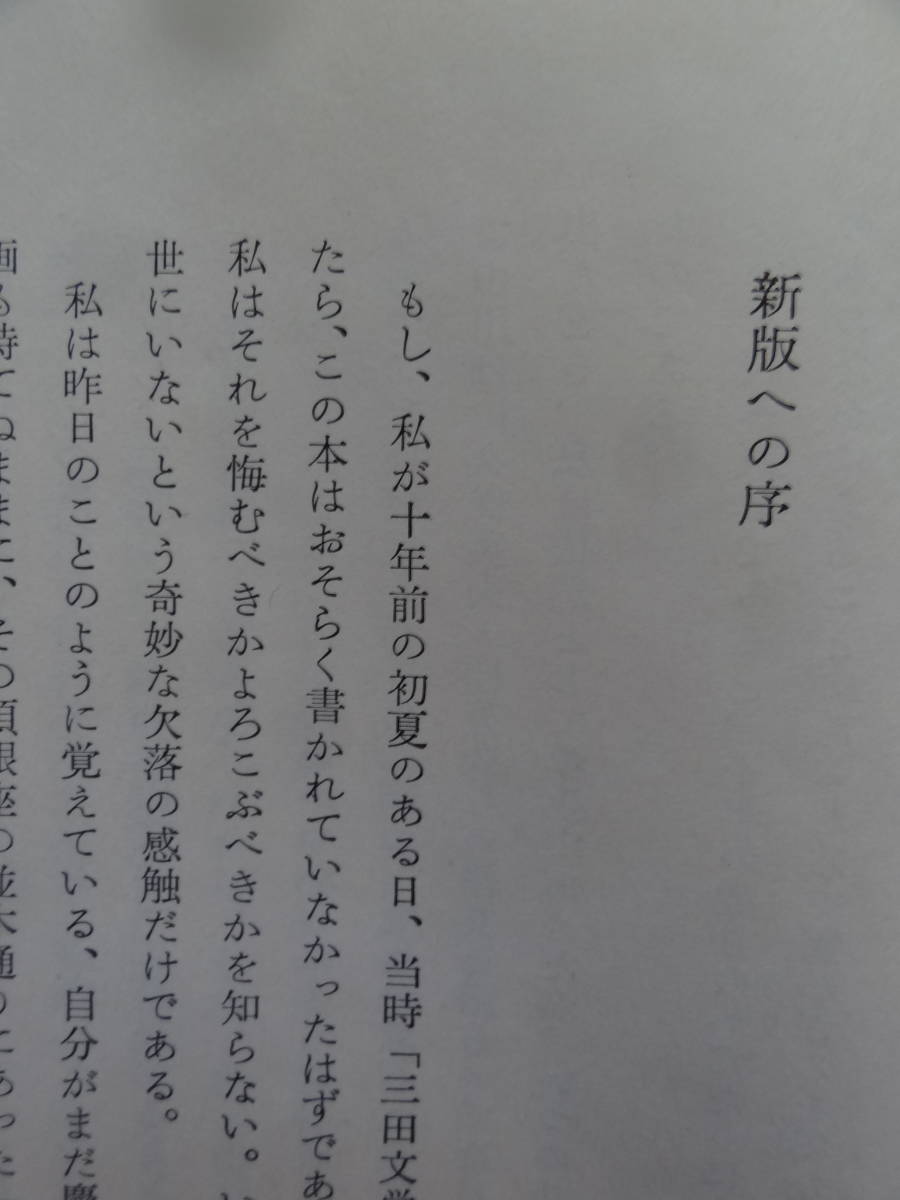 新版への序
もし、私が十年前の初夏のある日、当時「三田文学
たら、この本はおそらく書かれていなかったはずであ
私はそれを悔むべきかよろこぶべきかを知らない。い
世にいないという奇妙な欠落の感触だけである。
私は昨日のことのように覚えている、自分がまだ慶
画も持てぬままに、その頃銀座の並木通りにあった